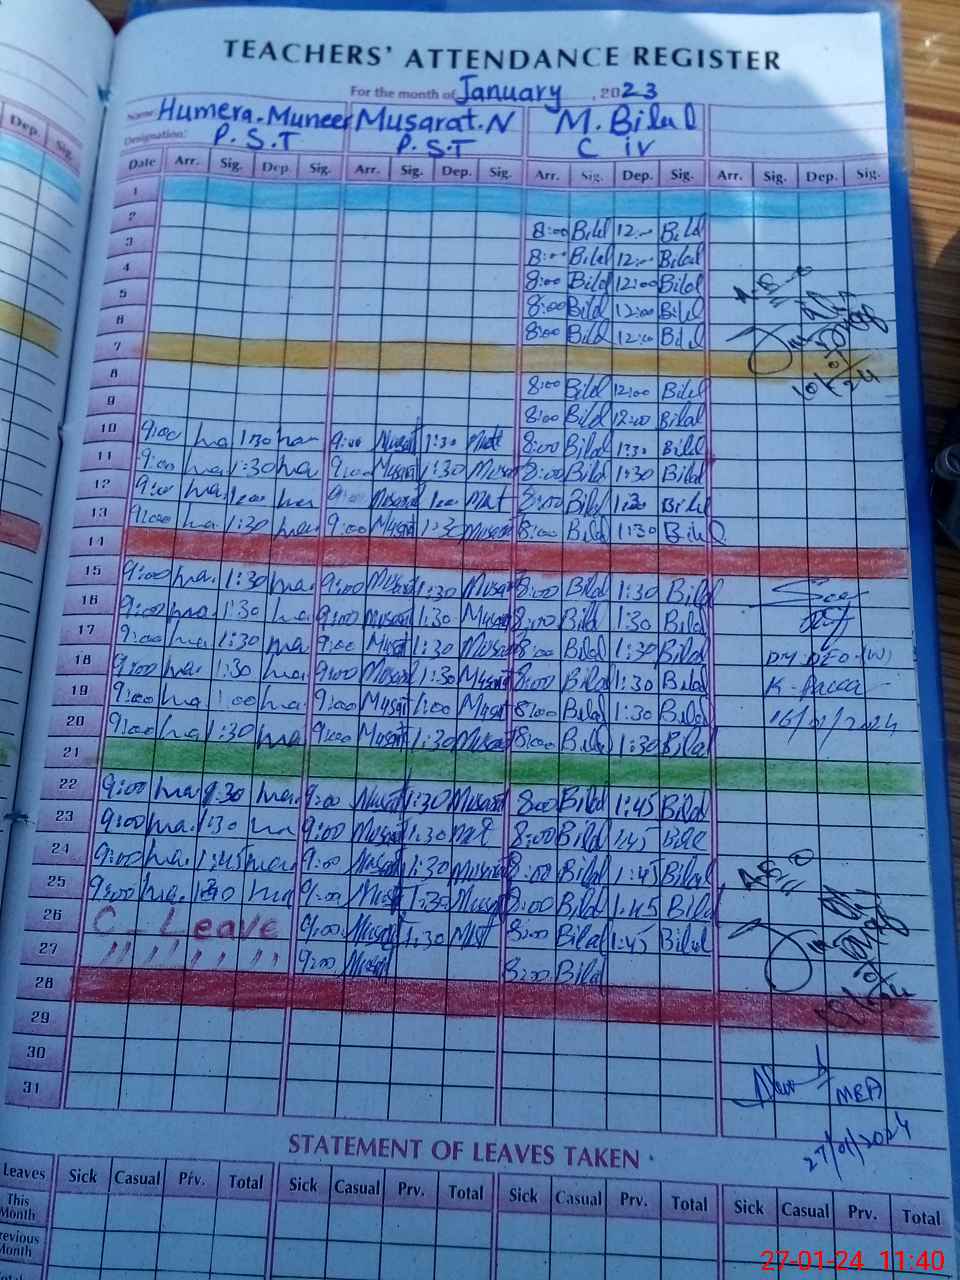 TEACHERS' ATTENDANCE REGISTER
For the month of January, 2023
Name: Humera.Muneer Musarat.N M. Bilal
Designation: P.S.T P.S.T C iv
Dep. Sig.
Date Arr. Sig. Dep. Sig. Arr. Sig. Dep. Sig. Arr. Sig. Dep. Sig. Arr. Sig. Dep. Sig.
1
2 8:00 Bilal 12:00 Bilal
3 8:00 Bilal 12:00 Bilal
4 8:00 Bilal 12:00 Bilal
5 8:00 Bilal 12:00 Bilal
6 8:00 Bilal 12:00 Bilal
7
8 8:00 Bilal 12:00 Bilal
9 8:00 Bilal 12:00 Bilal
10 9:00 ha 1:30 ha 9:00 Musarat 1:30 8:00 Bilal 1:30 Bilal
11 9:00 ha 1:30 ha 9:00 Musarat 1:30 Musarat 8:00 Bilal 1:30 Bilal
12 9:00 ha 1:00 ha 9:00 Musarat 1:00 8:00 Bilal 1:30 Bilal
13 9:00 ha 1:30 ha 9:00 Musarat 1:30 Musarat 8:00 Bilal 1:30 Bilal
14
15 9:00 ha. 1:30 ha. 9:00 Musarat 1:30 Musarat 8:00 Bilal 1:30 Bilal
16 9:00 ha. 1:30 ha 9:00 Musarat 1:30 Musarat 8:00 Bilal 1:30 Bilal
17 9:00 ha. 1:30 ha 9:00 Musarat 1:30 Musarat 8:00 Bilal 1:30 Bilal
18 9:00 ha. 1:30 ha. 9:00 Musarat 1:30 Musarat 8:00 Bilal 1:30 Bilal
19 9:00 ha 1:00 ha. 9:00 Musarat 1:00 Musarat 8:00 Bilal 1:30 Bilal
20 9:00 ha 1:30 ha 9:00 Musarat 1:30 Musarat 8:00 Bilal 1:30 Bilal
See
Dy. DEO.(W)
K-Pacca
16/01/2024
21
22 9:00 ha 1:30 ha. 9:00 Musarat 1:30 Musarat 8:00 Bilal 1:45 Bilal
23 9:00 ha. 1:30 ha 9:00 Musarat 1:30 8:00 Bilal 1:45 Bilal
24 9:00 ha. 1:45 ha 9:00 Musarat 1:30 Musarat 8:00 Bilal 1:45 Bilal
25 9:00 ha. 1:30 ha 9:00 Musarat 1:30 Musarat 8:00 Bilal 1:45 Bilal
26 C - Leave 9:00 Musarat 1:30 8:00 Bilal 1:45 Bilal
27 " " " " " " 9:00 Musarat 8:00 Bilal
28
29
30
31
MEA
27/01/2024
STATEMENT OF LEAVES TAKEN
Leaves Sick Casual Prv. Total Sick Casual Prv. Total Sick Casual Prv. Total Sick Casual Prv. Total
This Month
Previous Month
Total
27-01-24 11:40